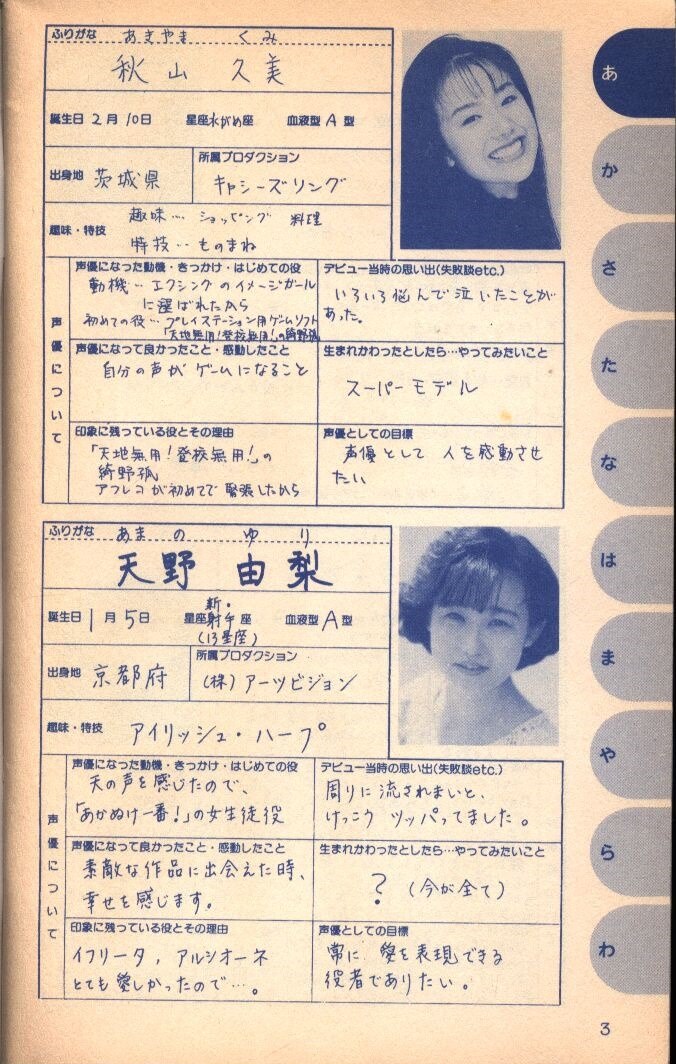 ふりがな あきやま くみ
秋山 久美
誕生日 2月10日 星座 水がめ座 血液型 A 型
出身地 茨城県
所属プロダクション
キャシーズリング
趣味・特技
趣味… ショッピング 料理
特技… ものまね
声優について
声優になった動機・きっかけ・はじめての役
動機… エクシングのイメージガール
に選ばれたから
初めての役… プレイステーション用ゲームソフト
「天地無用!登校無用!」の綺野孤
デビュー当時の思い出(失敗談etc.)
いろいろ悩んで泣いたことが
あった。
声優になって良かったこと・感動したこと
自分の声がゲームになること
生まれかわったとしたら…やってみたいこと
スーパーモデル
印象に残っている役とその理由
「天地無用!登校無用!」の
綺野孤
アフレコが初めてで緊張したから
声優としての目標
声優として 人を感動させ
たい
ふりがな あまの ゆり
天野 由梨
誕生日 1月5日 星座 新・射手座 血液型 A 型
(13星座)
出身地 京都府
所属プロダクション
(株)アーツビジョン
趣味・特技 アイリッシュ・ハープ
声優について
声優になった動機・きっかけ・はじめての役
天の声を感じたので、
「あかぬけ一番!」の女生徒役
デビュー当時の思い出(失敗談etc.)
周りに流されまいと、
けっこう ツッパってました。
声優になって良かったこと・感動したこと
素敵な作品に出会えた時、
幸せを感じます。
生まれかわったとしたら…やってみたいこと
? (今が全て)
印象に残っている役とその理由
イフリータ, アルシオーネ
とても愛しかったので…。
声優としての目標
常に 愛を表現できる
役者でありたい。
あ
か
さ
た
な
は
ま
や
ら
わ
3